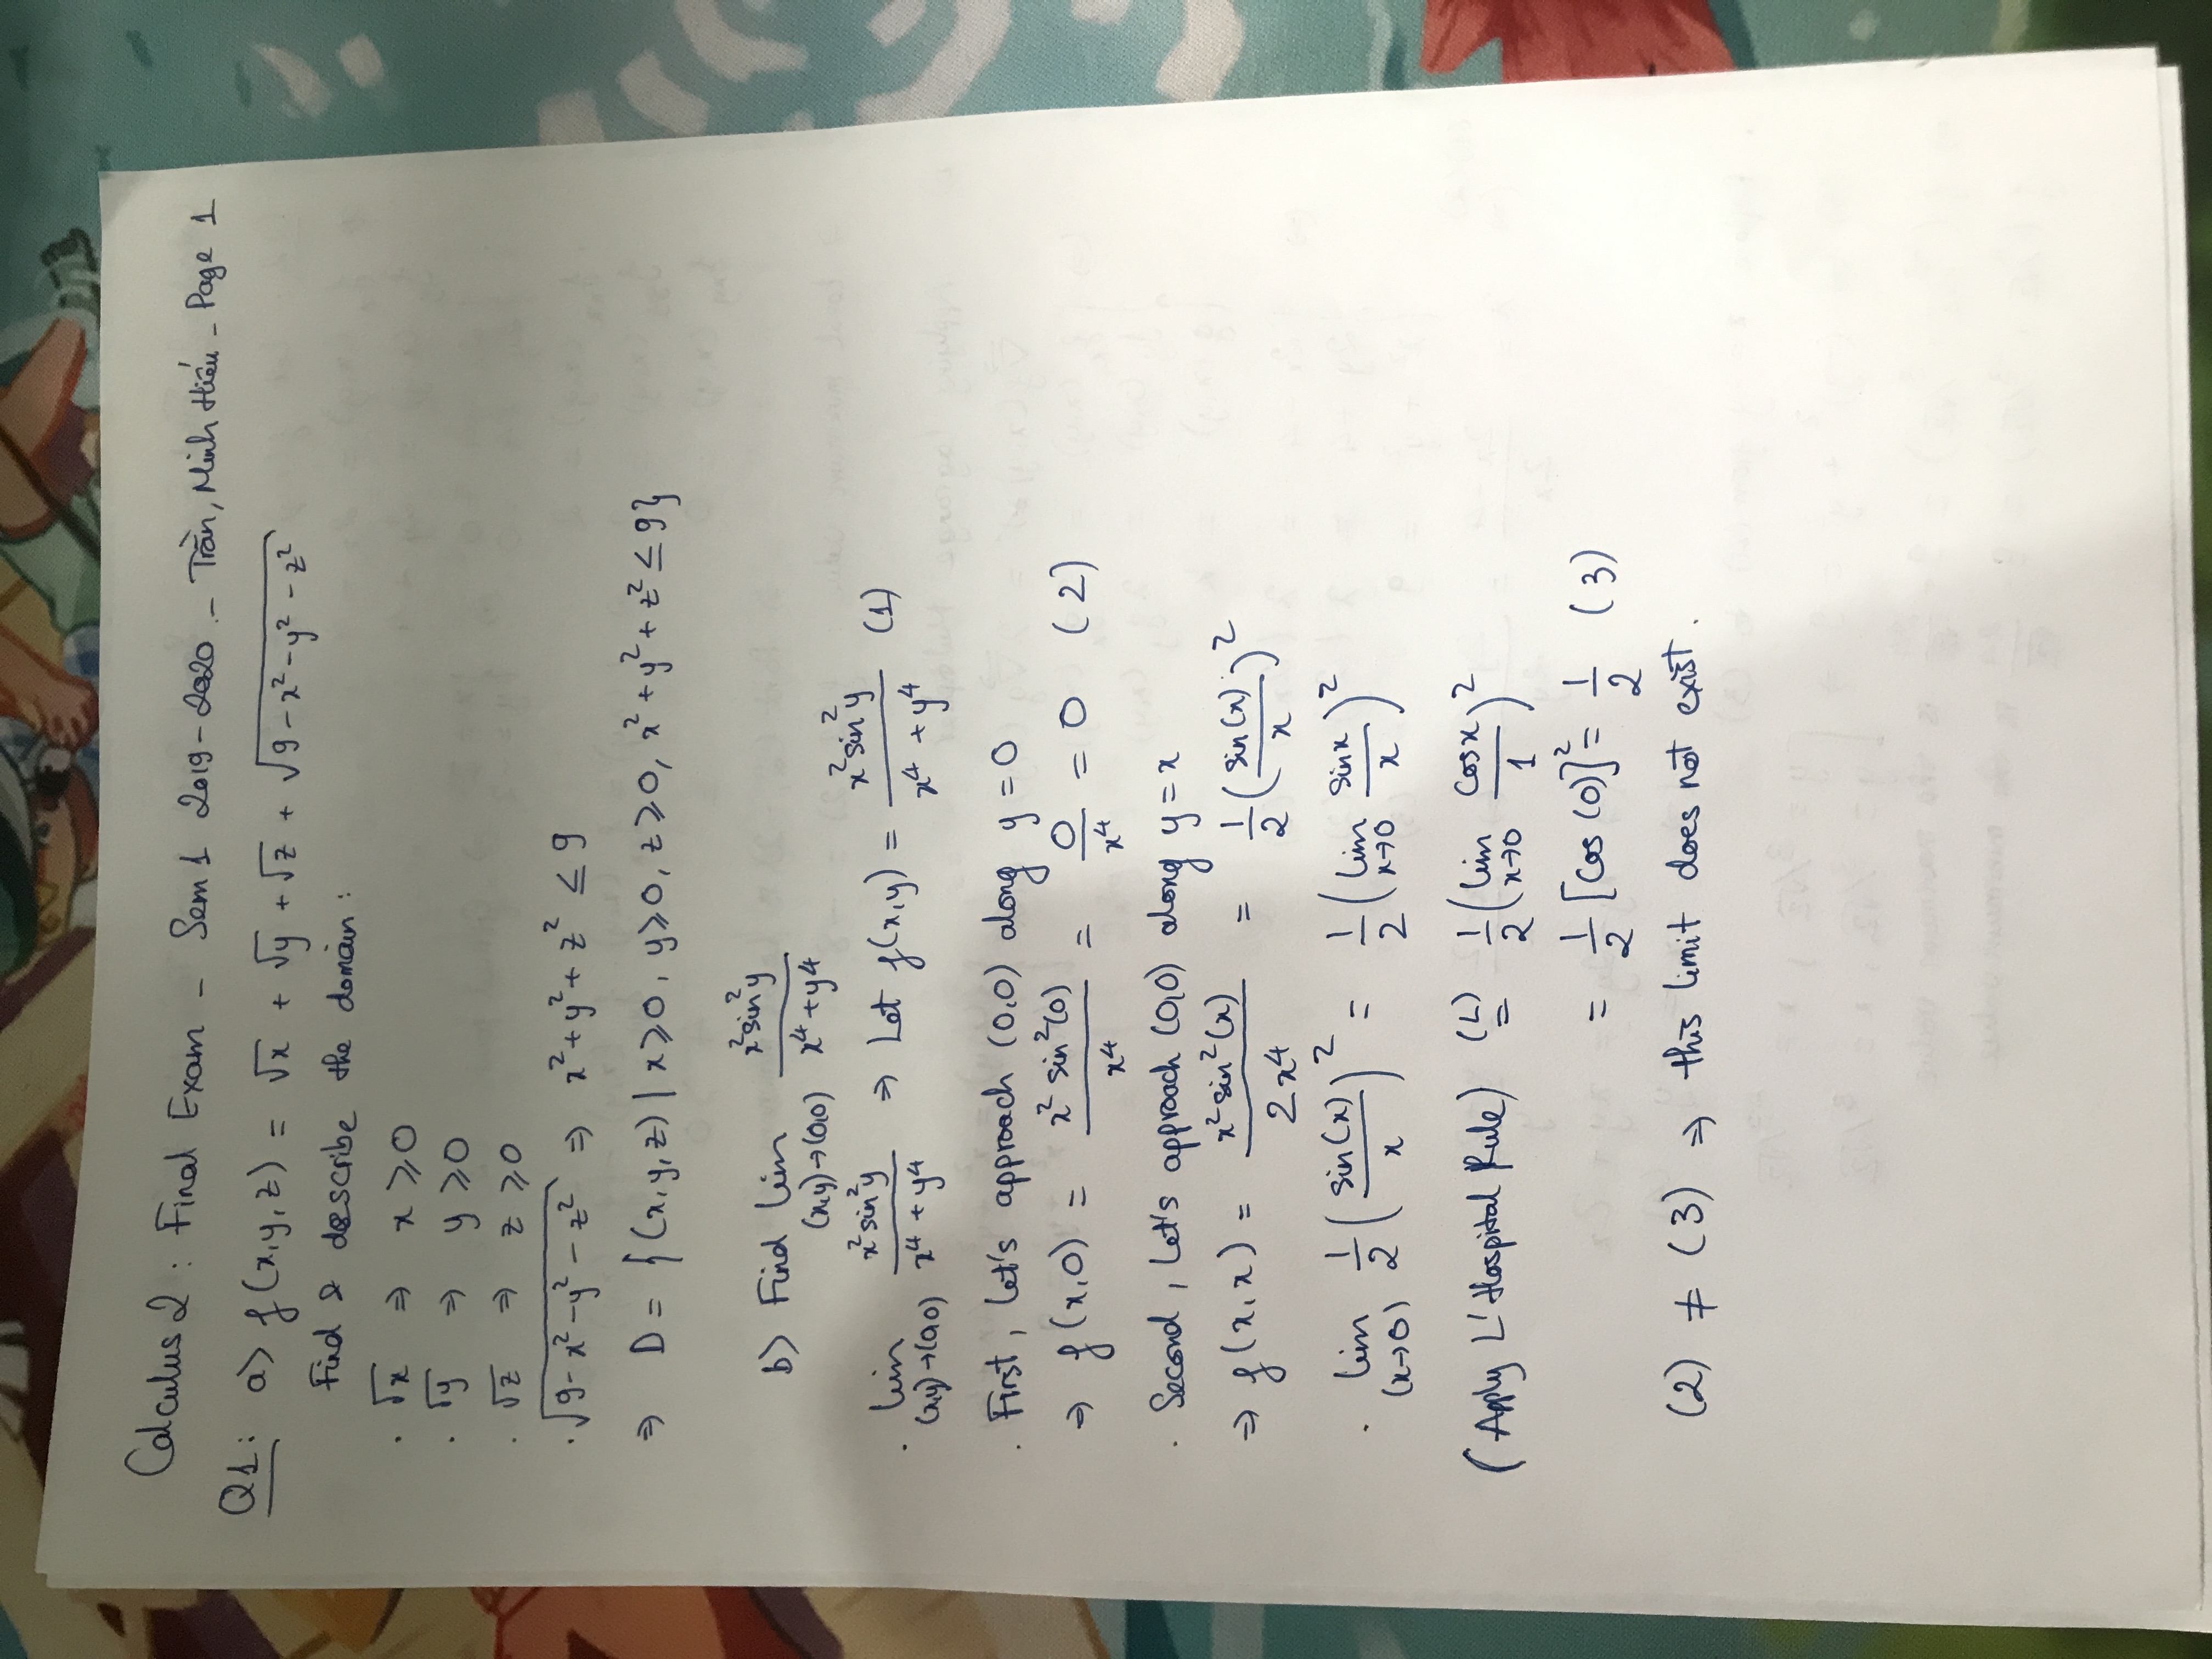 Calculus 2 : Final Exam - Sem 1 2019-2020 - Trần, Minh Hiếu - Page 1
Q1: a> f(x,y,z) = √x + √y + √z + √(9-x²-y²-z²)
Find & describe the domain:
. √x ⇒ x ⩾ 0
. √y ⇒ y ⩾ 0
. √z ⇒ z ⩾ 0
. √(9-x²-y²-z²) ⇒ x²+y²+z² ≤ 9
⇒ D = {(x,y,z) | x⩾0, y⩾0, z⩾0, x²+y²+z² ≤ 9}
b> Find lim (x,y)→(0,0) x²sin²y / x⁴+y⁴
. lim (x,y)→(0,0) x²sin²y / x⁴+y⁴ ⇒ Let f(x,y) = x²sin²y / x⁴+y⁴ (1)
. First, let's approach (0,0) along y = 0
⇒ f(x,0) = x² sin²(0) / x⁴ = 0 / x⁴ = 0 (2)
. Second, let's approach (0,0) along y = x
⇒ f(x,x) = x²sin²(x) / 2x⁴ = 1/2 (sin(x) / x)²
. lim (x→0) 1/2 (sin(x) / x)² = 1/2 (lim x→0 sinx / x)²
(Apply L'Hospital Rule) (L) = 1/2 (lim x→0 cosx / 1)²
= 1/2 [Cos(0)]² = 1/2 (3)
(2) ≠ (3) ⇒ this limit does not exist.